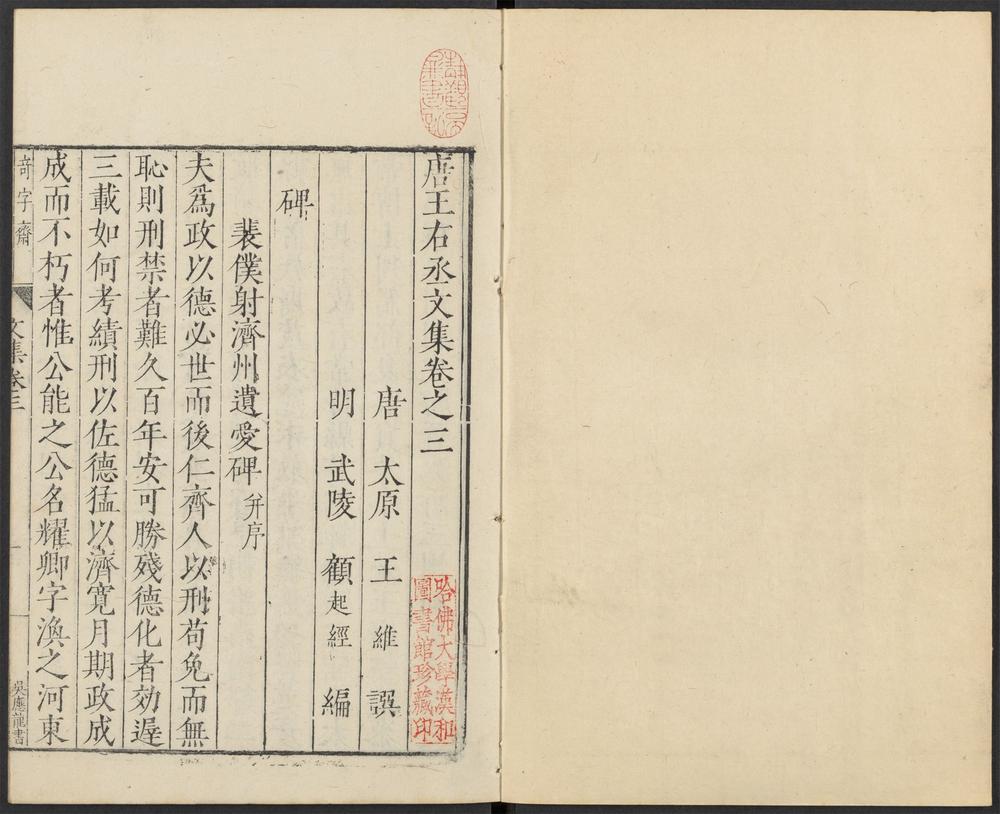 唐王右丞文集卷之三
唐太原王維譔
明武陵顧起經編
碑
裴僕射濟州遺愛碑并序
夫爲政以德必世而後仁齊人以刑苟免而無
恥則刑禁者難久百年安可勝殘德化者効遅
三載如何考績刑以佐德猛以濟寛月期政成
成而不朽者惟公能之公名耀卿字渙之河東
竒字齋
文集卷三
一
吳應龍書
哈佛大學漢和
圖書館珍藏印